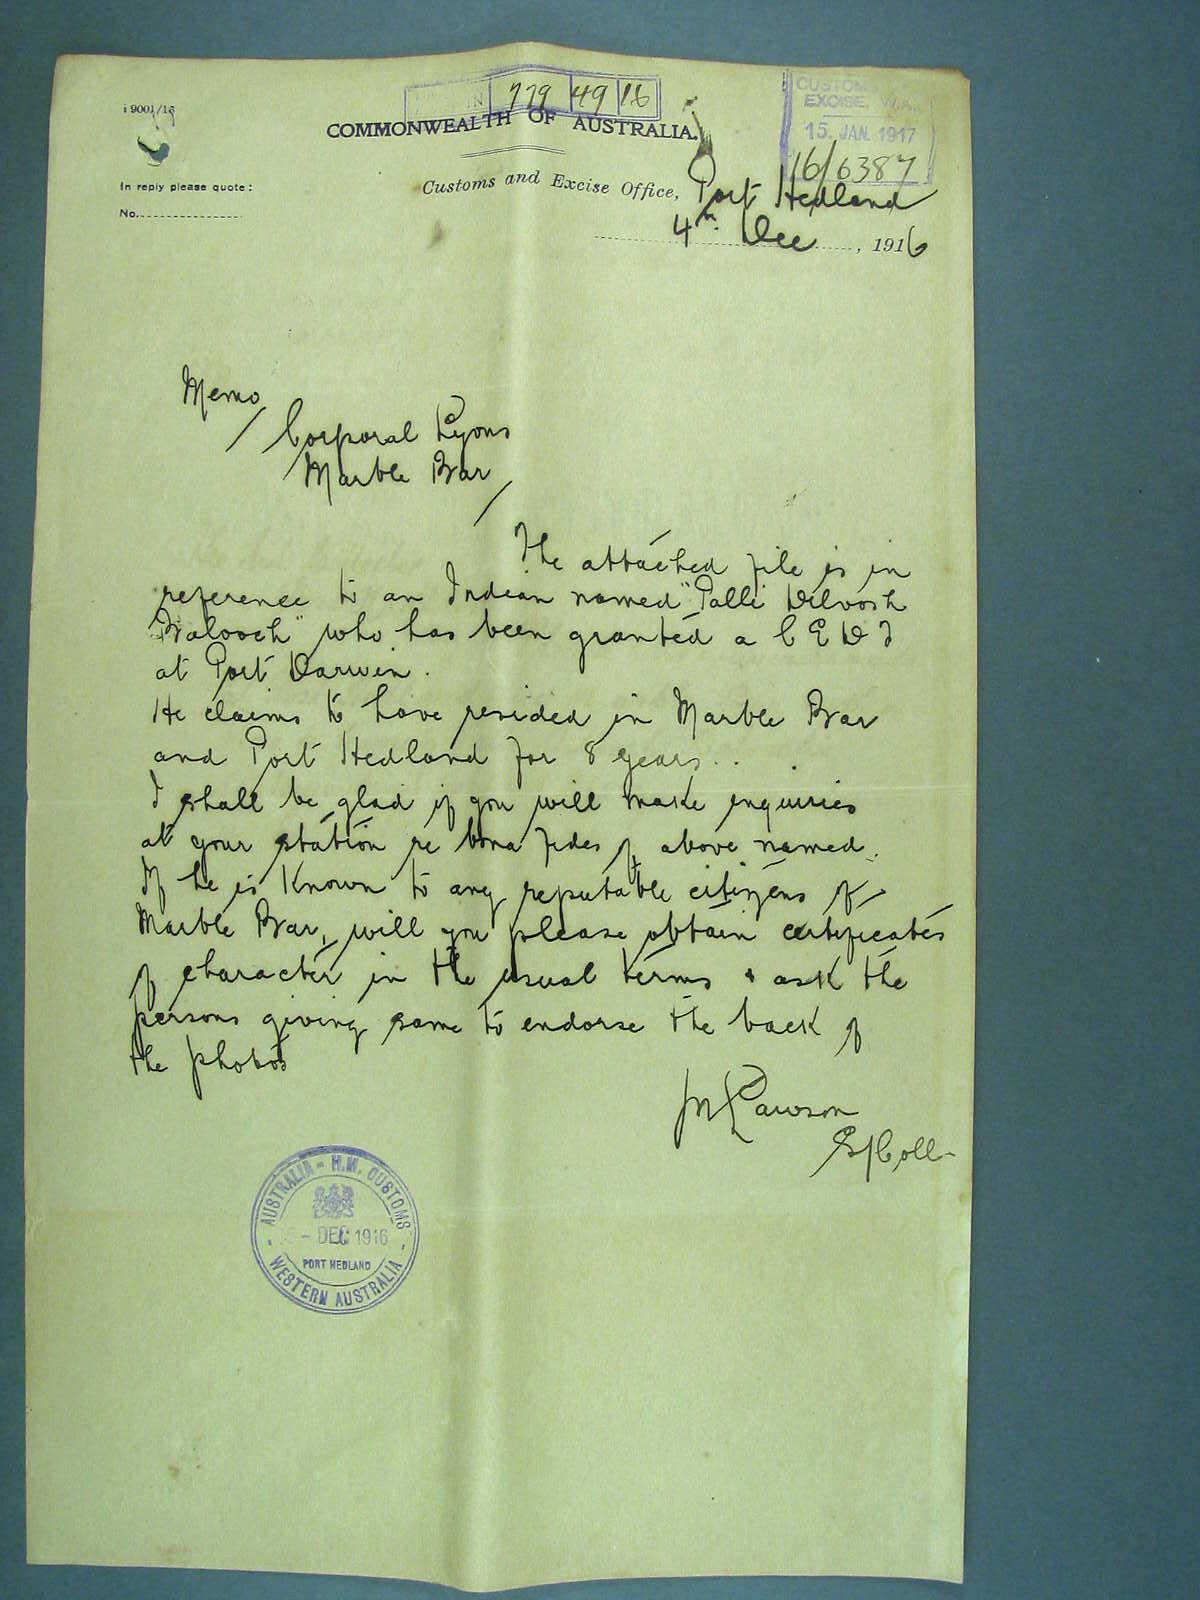 i 9001/15
779 49 16
COMMONWEALTH OF AUSTRALIA.
CUSTOMS
EXCISE, W.A.
15. JAN. 1917
16/6387
In reply please quote:
No.
Customs and Excise Office, Port Hedland
4th Dec, 1916
Memo
Corporal Lyons
Marble Bar
The attached file is in
reference to an Indian named "Palli Dilvosh
Balooch" who has been granted a C E D T
at Port Darwin.
He claims to have resided in Marble Bar
and Port Hedland for 8 years.
I shall be glad if you will make enquiries
at your station re bona fides of above named.
If he is known to any reputable citizens of
Marble Bar, will you please obtain certificates
of character in the usual terms & ask the
persons giving same to endorse the back of
the photos
Pawson
S/Coll
AUSTRALIA - H.M. CUSTOMS
- DEC 1916
PORT HEDLAND
WESTERN AUSTRALIA